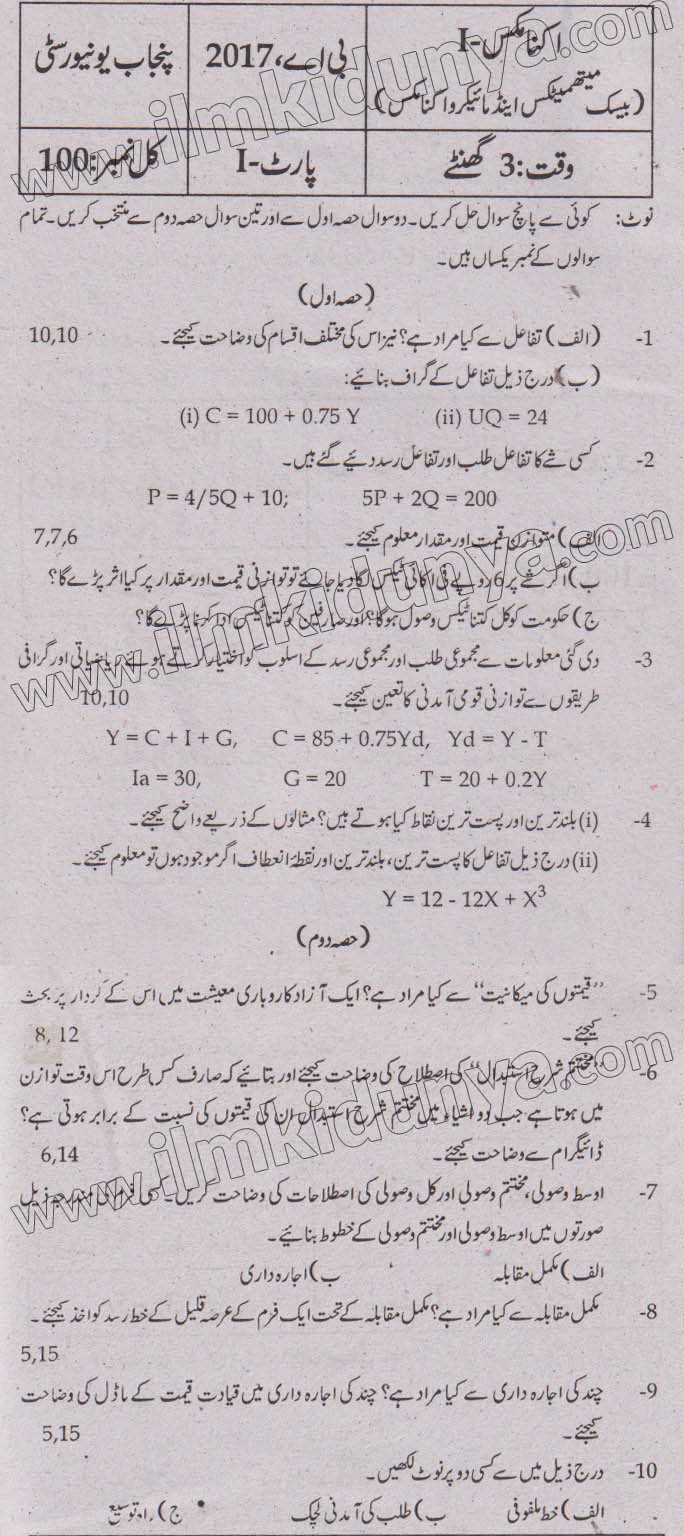 اکنامکس-I
(بیسک میتھمیٹکس اینڈ مائیکرو اکنامکس)
بی اے، 2017
پنجاب یونیورسٹی
وقت: 3 گھنٹے
پارٹ-I
کل نمبر: 100
نوٹ: کوئی سے پانچ سوال حل کریں۔ دو سوال حصہ اول سے اور تین سوال حصہ دوم سے منتخب کریں۔ تمام
سوالوں کے نمبر یکساں ہیں۔
(حصہ اول)
1- (الف) تفاعل سے کیا مراد ہے؟ نیز اس کی مختلف اقسام کی وضاحت کیجئے۔ 10,10
(ب) درج ذیل تفاعل کے گراف بنائیے:
(i) C = 100 + 0.75 Y (ii) UQ = 24
2- کسی شے کا تفاعل طلب اور تفاعل رسد دیئے گئے ہیں۔
P = 4/5Q + 10; 5P + 2Q = 200
الف) متوازن قیمت اور مقدار معلوم کیجئے۔ 7,7,6
ب) اگر شے پر 6 روپے فی اکائی ٹیکس لگا دیا جائے تو توازنی قیمت اور مقدار پر کیا اثر پڑے گا؟
ج) حکومت کو کل کتنا ٹیکس وصول ہو گا؟ اور صارفین کو کتنا ٹیکس ادا کرنا پڑے گا؟
3- دی گئی معلومات سے مجموعی طلب اور مجموعی رسد کے اسلوب کو اختیار کرتے ہوئے ریاضیاتی اور گرافی
طریقوں سے توازنی قومی آمدنی کا تعین کیجئے۔ 10,10
Y = C + I + G, C = 85 + 0.75Yd, Yd = Y - T
Ia = 30, G = 20 T = 20 + 0.2Y
4- (i) بلند ترین اور پست ترین نقاط کیا ہوتے ہیں؟ مثالوں کے ذریعے واضح کیجئے۔
(ii) درج ذیل تفاعل کا پست ترین، بلند ترین اور نقطۂ انعطاف اگر موجود ہوں تو معلوم کیجئے۔
Y = 12 - 12X + X³
(حصہ دوم)
5- ”قیمتوں کی میکانیت“ سے کیا مراد ہے؟ ایک آزاد کاروباری معیشت میں اس کے کردار پر بحث
کیجئے۔ 8, 12
6- ”مختتم شرح استبدال“ کی اصطلاح کی وضاحت کیجئے اور بتائیے کہ صارف کس طرح اس وقت توازن
میں ہوتا ہے جب دو اشیاء میں مختتم شرح استبدال ان کی قیمتوں کی نسبت کے برابر ہوتی ہے؟
ڈائیگرام سے وضاحت کیجئے۔ 6,14
7- اوسط وصولی، مختتم وصولی اور کل وصولی کی اصطلاحات کی وضاحت کریں۔ کسی فرم کی مندرجہ ذیل
صورتوں میں اوسط وصولی اور مختتم وصولی کے خطوط بنائیے۔
الف) مکمل مقابلہ ب) اجارہ داری
8- مکمل مقابلہ سے کیا مراد ہے؟ مکمل مقابلہ کے تحت ایک فرم کے عرصہ قلیل کے خط رسد کو اخذ کیجئے۔
5,15
9- چند کی اجارہ داری سے کیا مراد ہے؟ چند کی اجارہ داری میں قیادت قیمت کے ماڈل کی وضاحت
کیجئے۔ 5,15
10- درج ذیل میں سے کسی دو پر نوٹ لکھیں۔
الف) خط ملفوفی ب) طلب کی آمدنی لچک ج) راہ توسیع
www.ilmkidunya.com
www.ilmkidunya.com
www.ilmkidunya.com